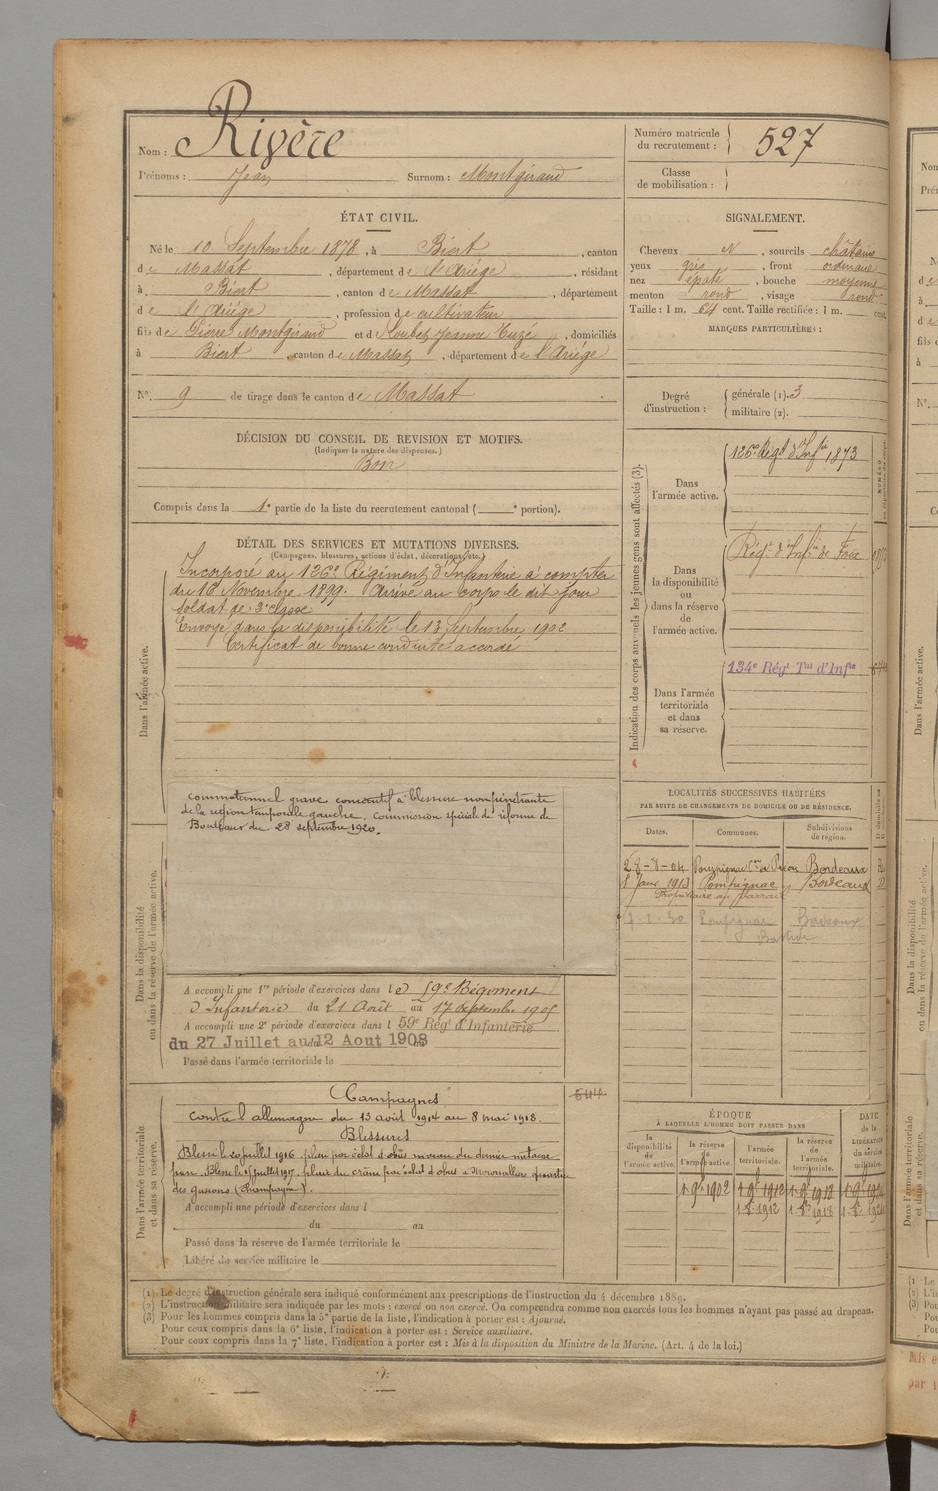 Nom : Rivère
Prénoms : Jean Surnom : Montgiraud
Numéro matricule du recrutement : 527
Classe de mobilisation :
ÉTAT CIVIL.
Né le 10 Septembre 1878, à Biert, canton
de Massat, département de l'Ariége, résidant
à Biert, canton de Massat, département
de l'Ariége, profession de cultivateur
fils de Pierre Montgiraud et de Loubet Jeanne Suzé, domiciliés
à Biert, canton de Massat, département de l'Ariége
N° 9 de tirage dans le canton de Massat
SIGNALEMENT.
Cheveux N, sourcils châtains
yeux gris, front ordinaire
nez épaté, bouche moyenne
menton rond, visage rond
Taille : 1 m. 64 cent. Taille rectifiée : 1 m. cent.
MARQUES PARTICULIÈRES :
Degré d'instruction : générale (1). 3
militaire (2).
DÉCISION DU CONSEIL DE REVISION ET MOTIFS.
(Indiquer la nature des dispenses.)
Bon
Compris dans la 1e partie de la liste du recrutement cantonal ( e portion).
DÉTAIL DES SERVICES ET MUTATIONS DIVERSES.
(Campagnes, blessures, actions d'éclat, décorations, etc.)
Dans l'armée active.
Incorporé au 126e Régiment d'Infanterie à compter
du 16 Novembre 1899. Arrivé au corps le dit jour
soldat de 2e classe.
Envoyé dans la disponibilité le 13 Septembre 1902
Certificat de bonne conduite accordé
Dans la disponibilité ou dans la réserve de l'armée active.
commotionnel grave consécutif à blessure non pénétrante
de la région temporale gauche. Commission spéciale de réforme de
Bordeaux du 28 septembre 1920.
A accompli une 1re période d'exercices dans le 59e Régiment
d'Infanterie du 21 Août au 17 Septembre 1905
A accompli une 2e période d'exercices dans l 59e Régt d'Infanterie
du 27 Juillet au 12 Aout 1908
Passé dans l'armée territoriale le
Dans l'armée territoriale et dans sa réserve.
Campagnes
544
contre l'allemagne du 13 août 1914 au 8 mai 1918.
Blessures
Blessé le 20 juillet 1916. plaie par éclat d'obus niveau du dernier métacar
pien. Blessé le juillet 1917. plaie du crâne par éclat d'obus à Mourmelon
A accompli une période d'exercices dans l
du au
Passé dans la réserve de l'armée territoriale le
Libéré du service militaire le
Indication des corps auxquels les jeunes gens sont affectés (3).
Dans l'armée active.
126e Régt d'Inftie 1873
Dans la disponibilité ou dans la réserve de l'armée active.
Régt d'Inftie de Foix
Dans l'armée territoriale et dans sa réserve.
134e Régt Tal d'Infie
LOCALITÉS SUCCESSIVES HABITÉES
PAR SUITE DE CHANGEMENTS DE DOMICILE OU DE RÉSIDENCE.
Dates. Communes. Subdivisions de région.
28-8-04 Pompignac Bordeaux
1 Janv 1913 Pompignac Bordeaux
Pompignac Bordeaux
Bastide
ÉPOQUE
À LAQUELLE L'HOMME DOIT PASSER DANS
la disponibilité de l'armée active. la réserve de l'armée active. l'armée territoriale. la réserve de l'armée territoriale. DATE de la LIBÉRATION du service militaire.
1 9e 1902 1 9e 1912 1 9e 1918
1 8e 1912 1 8e 1918
(1) Le degré d'instruction générale sera indiqué conformément aux prescriptions de l'instruction du 4 décembre 1889.
(2) L'instruction militaire sera indiquée par les mots : exercé ou non exercé. On comprendra comme non exercés tous les hommes n'ayant pas passé au drapeau.
(3) Pour les hommes compris dans la 5e partie de la liste, l'indication à porter est : Ajourné.
Pour ceux compris dans la 6e liste, l'indication à porter est : Service auxiliaire.
Pour ceux compris dans la 7e liste, l'indication à porter est : Mis à la disposition du Ministre de la Marine. (Art. 4 de la loi.)